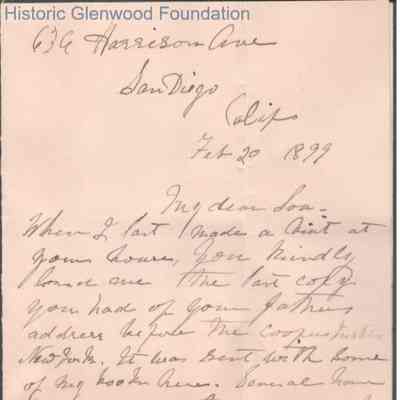 Historic Glenwood Foundation
636 Harrison Ave
San Diego
Calif
Feb 20 1899
My dear
When I last made a visit at
your house, you kindly
loand me the last copy
you had of your fathers
address before the
New York. It was sent with some
of my books here. Several have